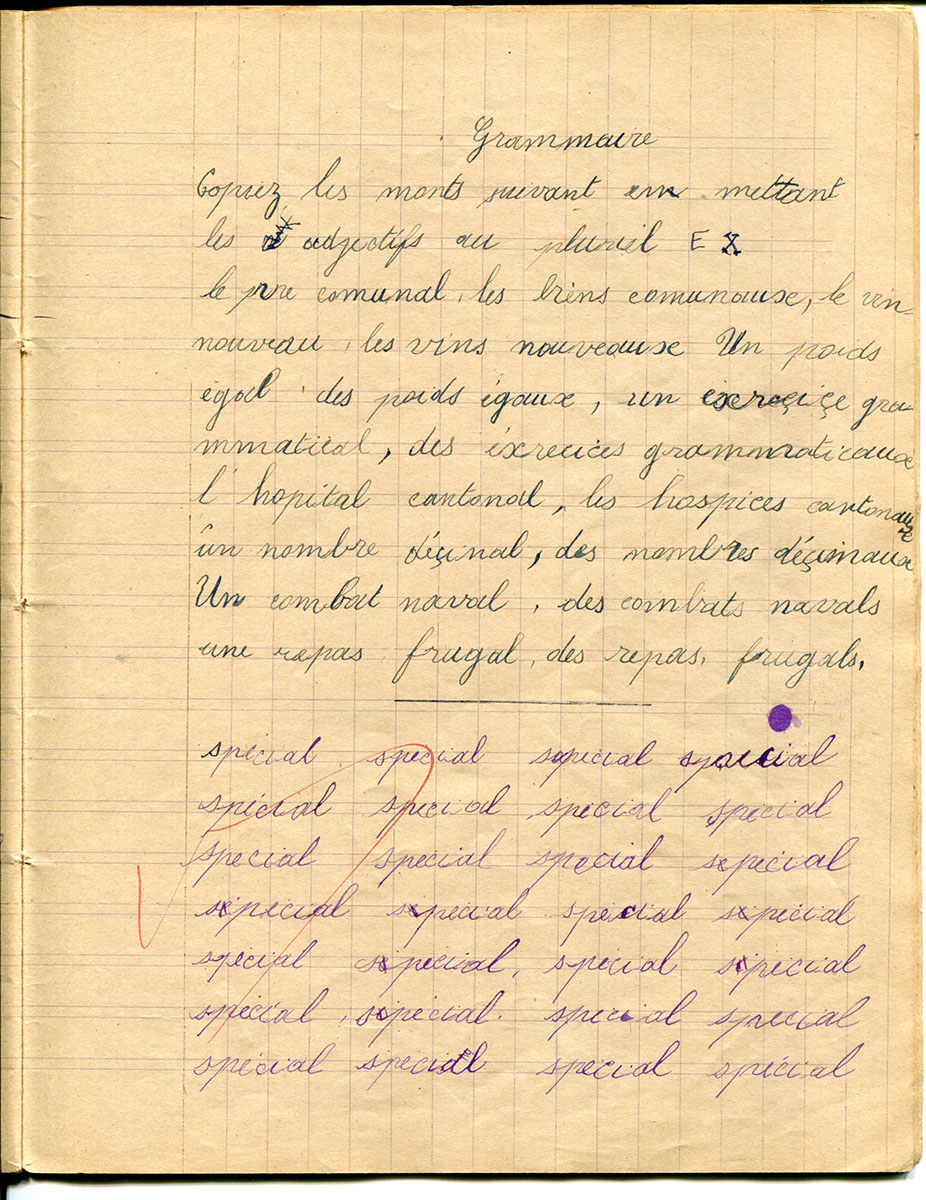 Grammaire
Copiez les monts suivant en mettant
les adjectifs au pluriel EX
le pre comunal, les biens comunaux, le vin
nouveau, les vins nouveaux Un poids
égal des poids égaux, un exerçiçe gra-
mmatical, des éxrecices grammaticaux
l'hopital cantonal, les hospices cantonaux
un nombre déçinal, des nombres déçimaux
Un combat naval, des combats navals
une repas frugal, des repas, frugals.
spécial spécial spécial spécial
spécial spécial spécial spécial
spécial spécial spécial spécial
spécial spécial spécial spécial
spécial spécial, spécial spécial
spécial, spécial. spécial spécial
spécial spécial spécial spécial